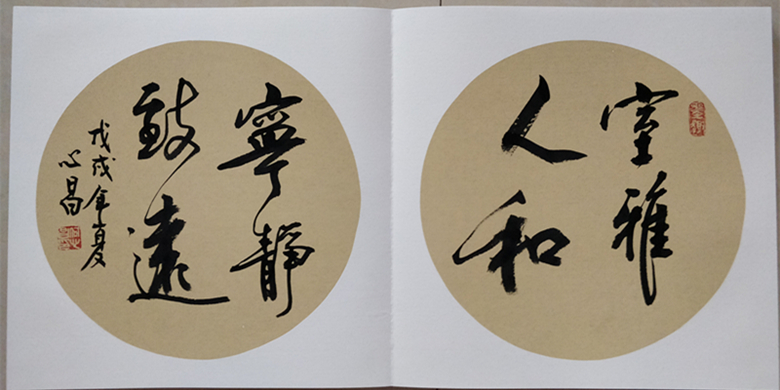 室雅
人和
寧靜
致遠
戊戌年夏
心昌